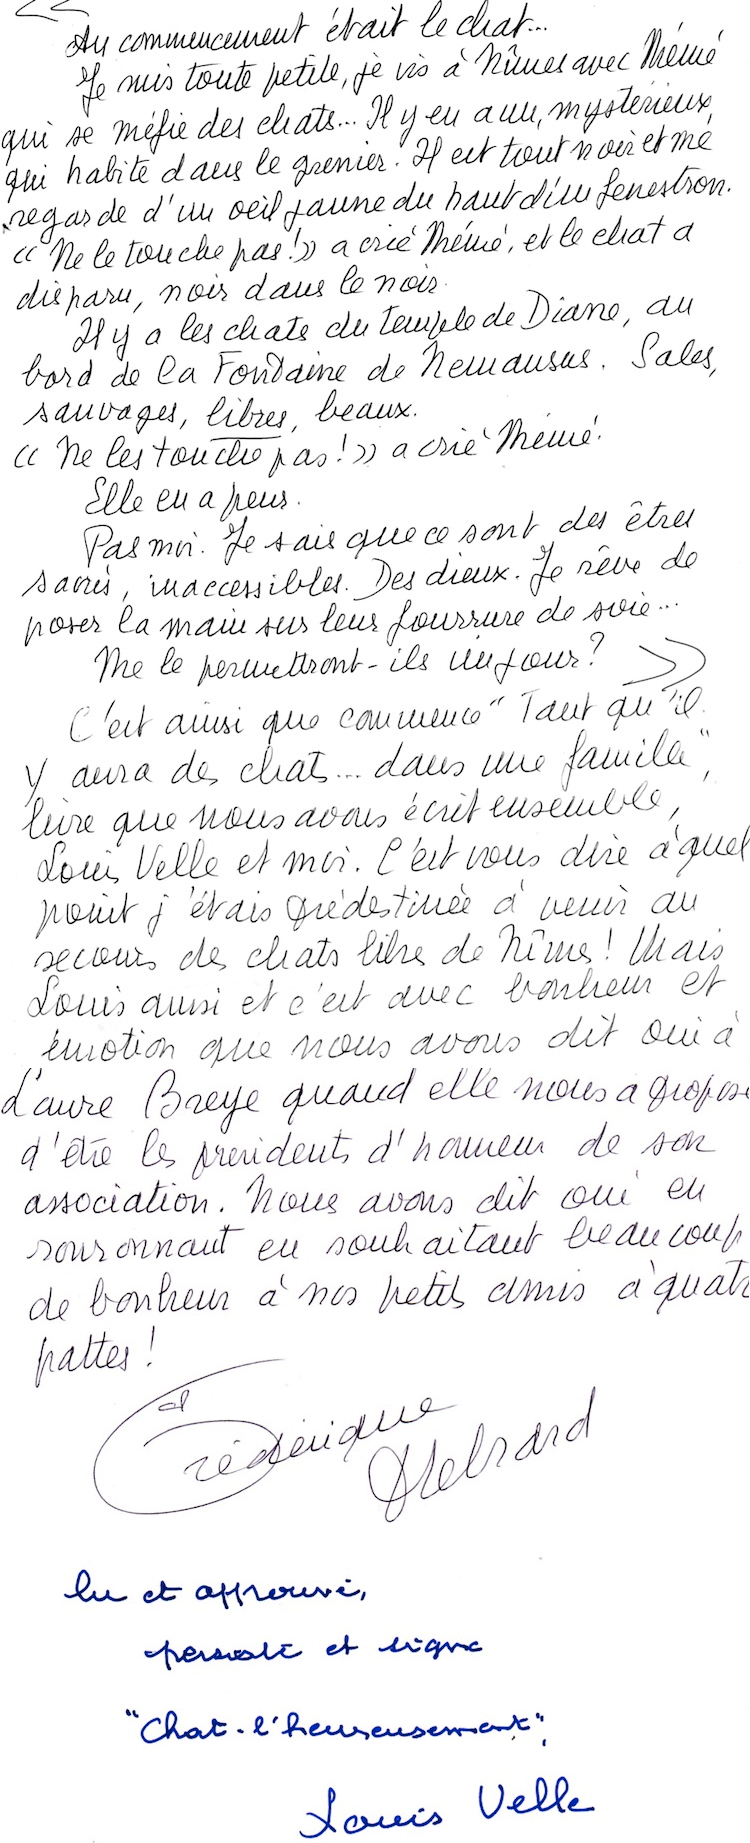 «
Au commencement était le chat...
Je suis toute petite, je vis à Nîmes avec Mémé
qui se méfie des chats... Il y en a un, mystérieux,
qui habite dans le grenier. Il est tout noir et me
regarde d'un oeil jaune du haut d'un fenestron.
« Ne le touche pas ! » a crié Mémé, et le chat a
disparu, noir dans le noir.
Il y a les chats du temple de Diane, au
bord de la Fontaine de Nemausus. Sales,
sauvages, libres, beaux.
« Ne les touche pas ! » a crié Mémé.
Elle en a peur.
Pas moi. Je sais que ce sont des êtres
sacrés, inaccessibles. Des dieux. Je rêve de
poser la main sur leur fourrure de soie...
Me le permettront-ils un jour ? »
C'est ainsi que commence "Tant qu'il
y aura des chats... dans une famille",
livre que nous avons écrit ensemble,
Louis Velle et moi. C'est vous dire à quel
point j'étais prédestinée à venir au
secours des chats libres de Nîmes ! Mais
Louis aussi et c'est avec bonheur et
émotion que nous avons dit oui à
Laure Breye quand elle nous a proposé
d'être les présidents d'honneur de son
association. Nous avons dit oui en
ronronnant en souhaitant beaucoup
de bonheur à nos petits amis à quatr
pattes !
Frédérique
Hebrard
lu et approuvé,
persiste et signe
"Chat-l'heureusement".
Louis Velle